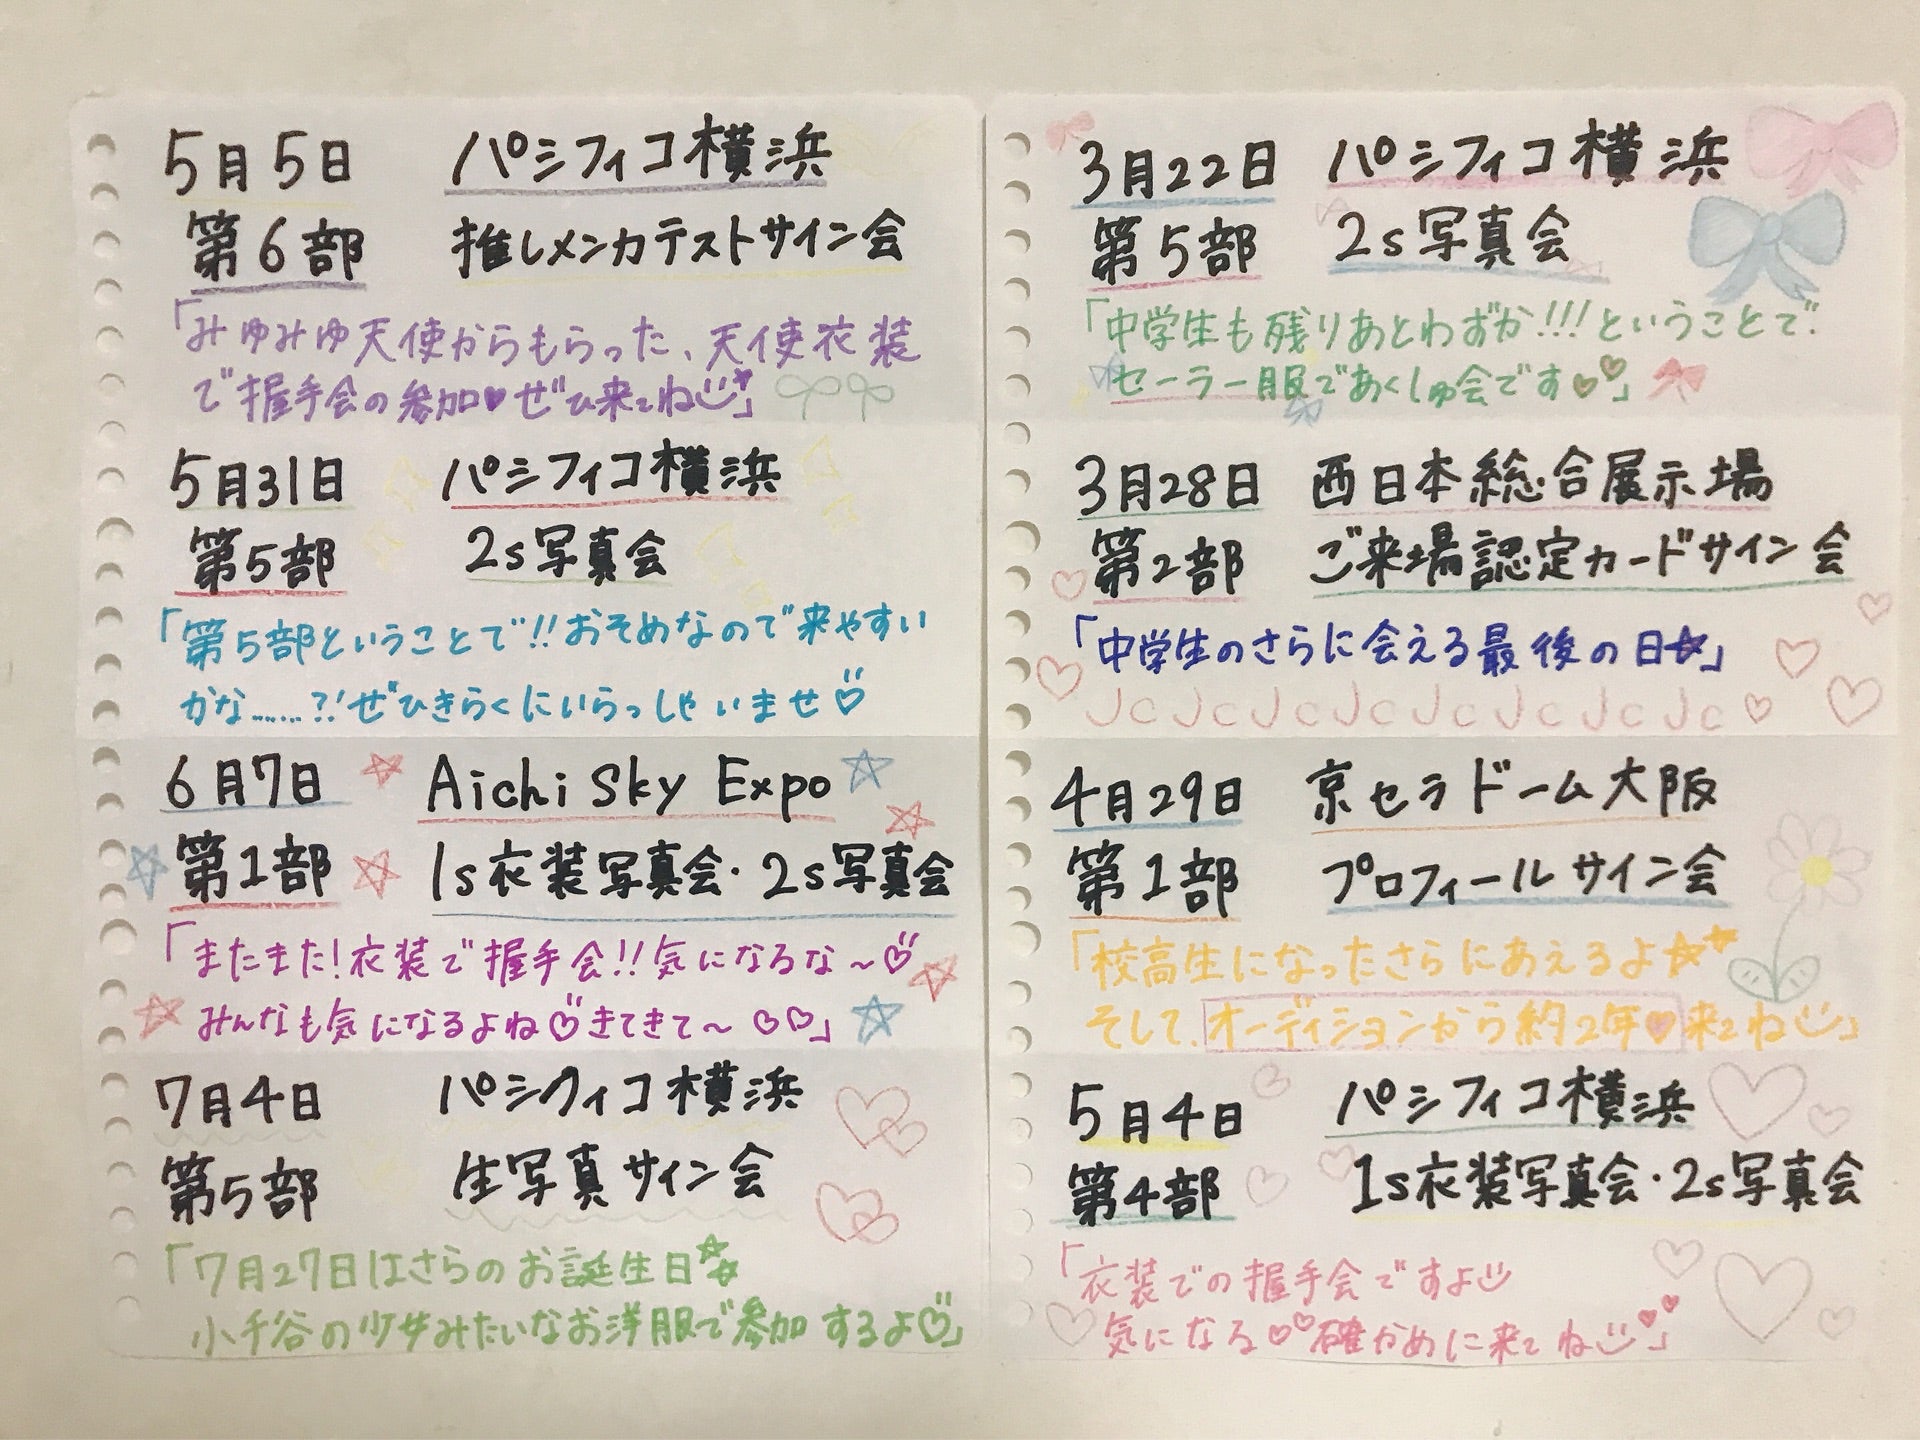 5月5日 パシフィコ横浜
第6部 推しメンカテストサイン会
「みゆみゆ天使からもらった、天使衣装
で握手会の参加♥ぜひ来てね」
5月31日 パシフィコ横浜
第5部 2s写真会
「第5部ということで!!おそめなので来やすい
かな……?!ぜひきらくにいらっしゃいませ♡
6月7日 Aichi Sky Expo
第1部 1s衣装写真会・2s写真会
「またまた!衣装で握手会!!気になるな~♡
みんなも気になるよね♡きてきて~♡♡」
7月4日 パシフィコ横浜
第5部 生写真サイン会
「7月27日はさらのお誕生日☆
小千谷の少女みたいなお洋服で参加するよ♡」
3月22日 パシフィコ横浜
第5部 2s写真会
「中学生も残りあとわずか!!!ということで
セーラー服であくしゅ会です♡♡」
3月28日 西日本総合展示場
第2部 ご来場認定カードサイン会
「中学生のさらに会える最後の日☆」
JcJcJcJcJcJcJcJc♡
4月29日 京セラドーム大阪
第1部 プロフィールサイン会
「校高生になったさらにあえるよ★★
そして、オーディションから約2年♥来てね」
5月4日 パシフィコ横浜
第4部 1s衣装写真会・2s写真会
「衣装での握手会ですよ
気になる♡♡確かめに来てね♥♥」